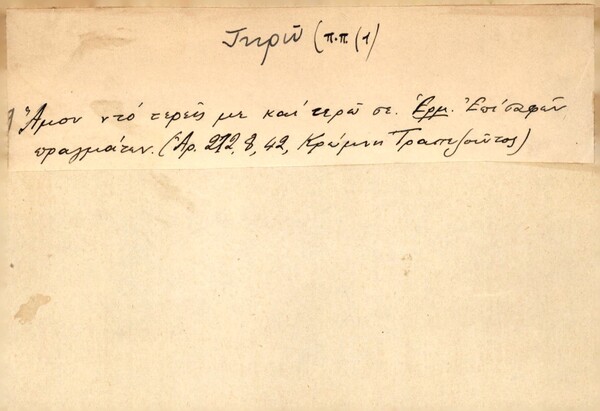 Τηρῶ (π.π (1)
Ἄμον ντό τερεῖς με και τερῶ σε. Ἑρμ. Ἐπί σαφῶν
πραγμάτων. (Ἀρ. 272, 8, 42, Κρώμνη Τραπεζοῦντος)